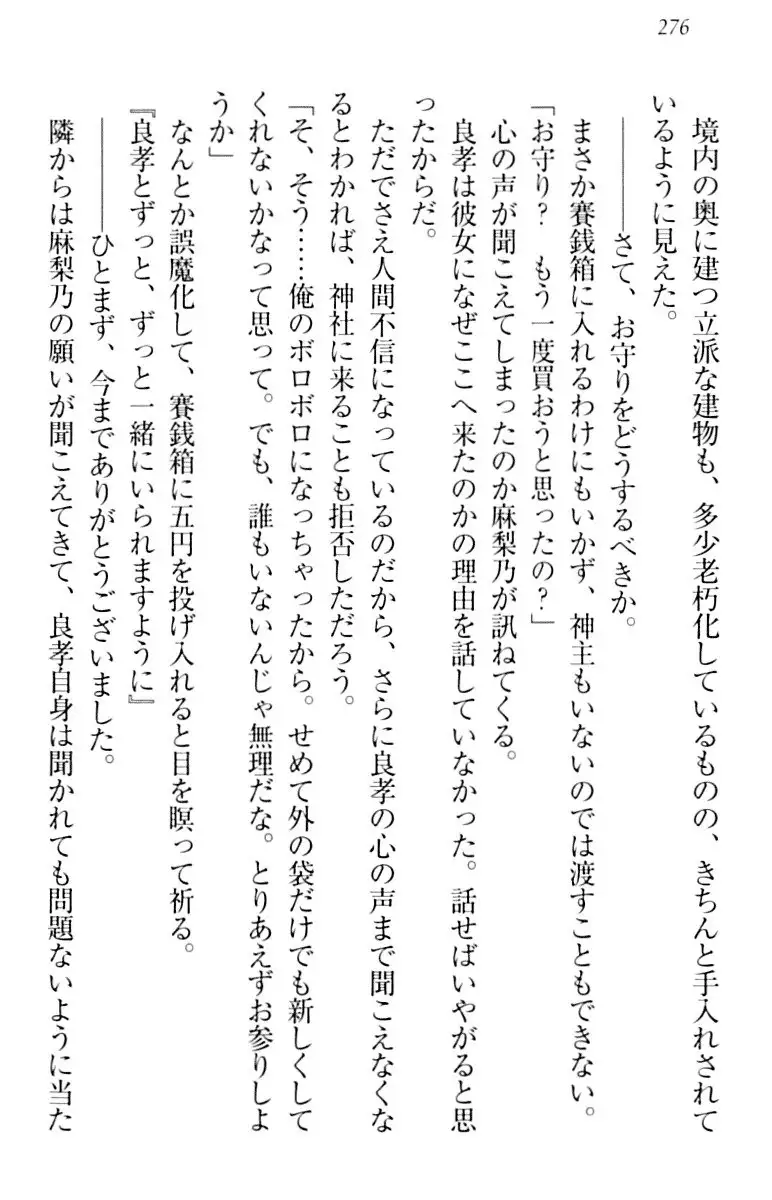 276
境内の奥に建つ立派な建物も、多少老朽化しているものの、きちんと手入れされて
いるように見えた。
――さて、お守りをどうするべきか。
まさか賽銭箱に入れるわけにもいかず、神主もいないのでは渡すこともできない。
「お守り？　もう一度買おうと思ったの？」
心の声が聞こえてしまったのか麻梨乃が訊ねてくる。
良孝は彼女になぜここへ来たのかの理由を話していなかった。話せばいやがると思
ったからだ。
ただでさえ人間不信になっているのだから、さらに良孝の心の声まで聞こえなくな
るとわかれば、神社に来ることも拒否しただろう。
「そ、そう……俺のボロボロになっちゃったから。せめて外の袋だけでも新しくして
くれないかなって思って。でも、誰もいないんじゃ無理だな。とりあえずお参りしよ
うか」
なんとか誤魔化して、賽銭箱に五円を投げ入れると目を瞑って祈る。
『良孝とずっと、ずっと一緒にいられますように』
――ひとまず、今までありがとうございました。
隣からは麻梨乃の願いが聞こえてきて、良孝自身は聞かれても問題ないように当た